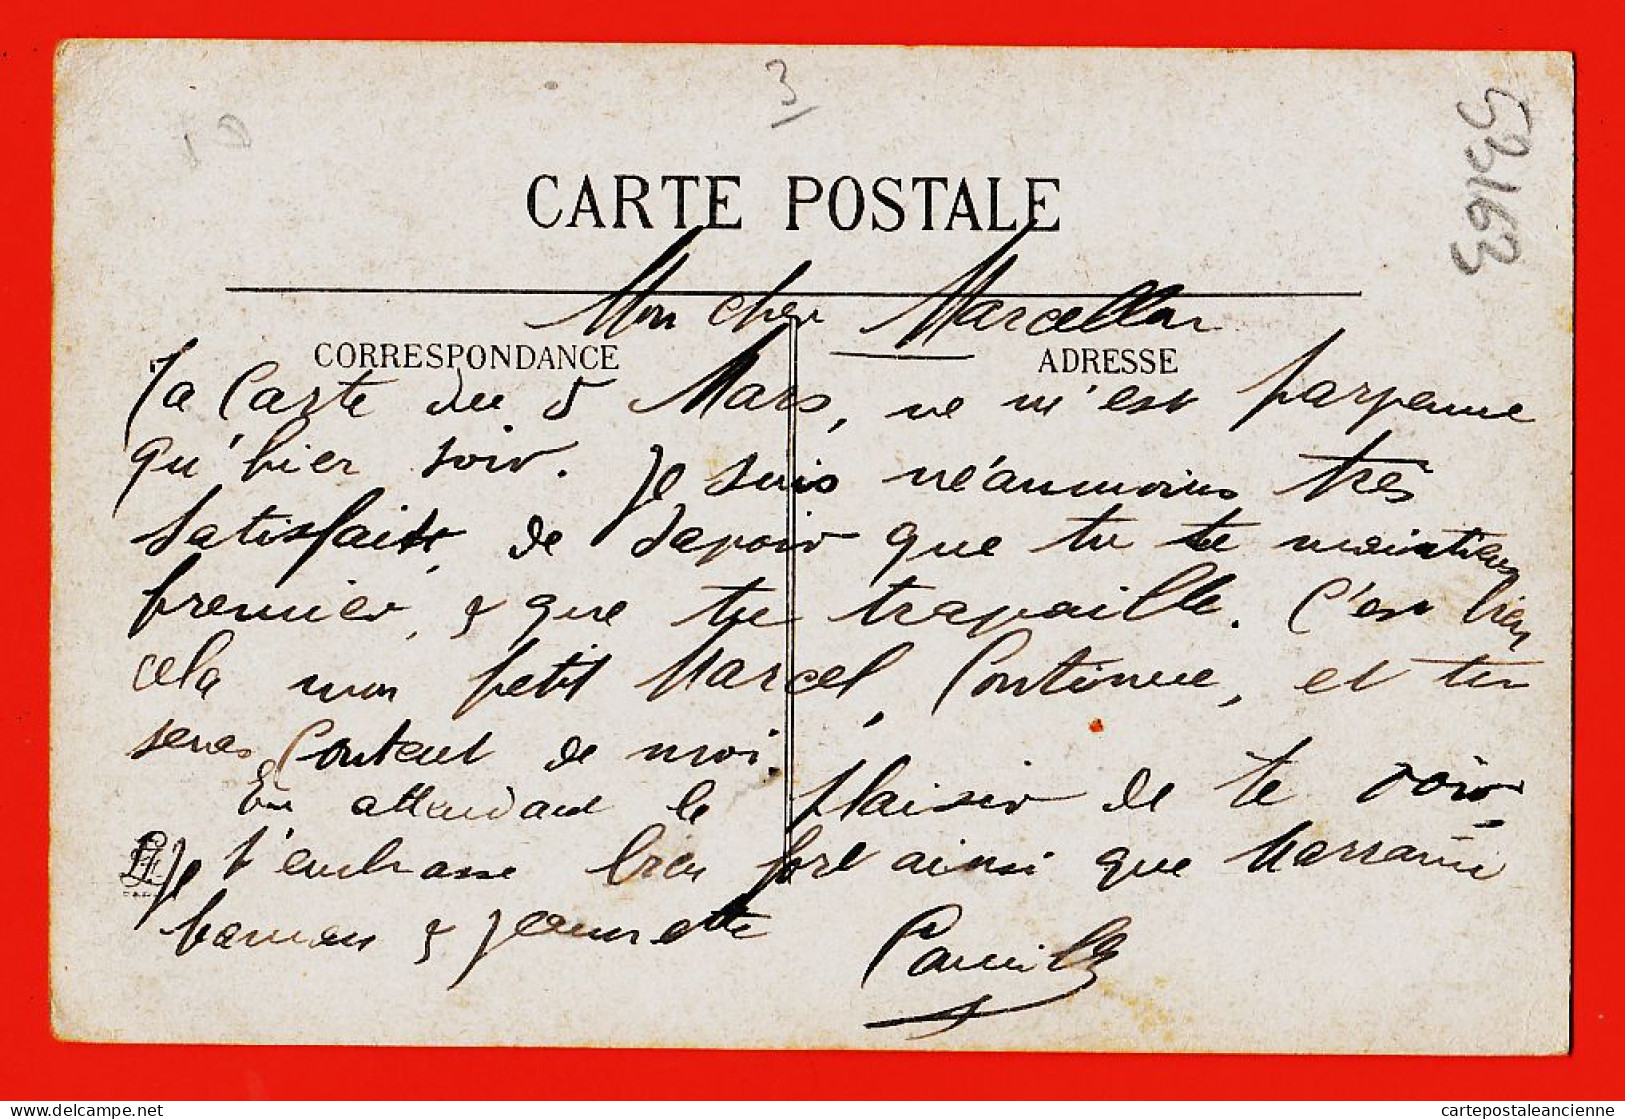 3
53163
CARTE POSTALE
Mon cher Marcellou
CORRESPONDANCE
ADRESSE
Ta Carte du 5 Mars, ne m'est parvenue
qu'hier soir. Je suis néanmoins très
satisfait, de savoir que tu te maintiens
premier, & que tu travaille. C'est bien
cela mon petit Marcel, Continue, et tu
seras Content de moi.
En attendant le plaisir de te voir
Je t'embrasse bien fort ainsi que
& Jeannette
Camille
Delcampe.net
cartepostaleancienne